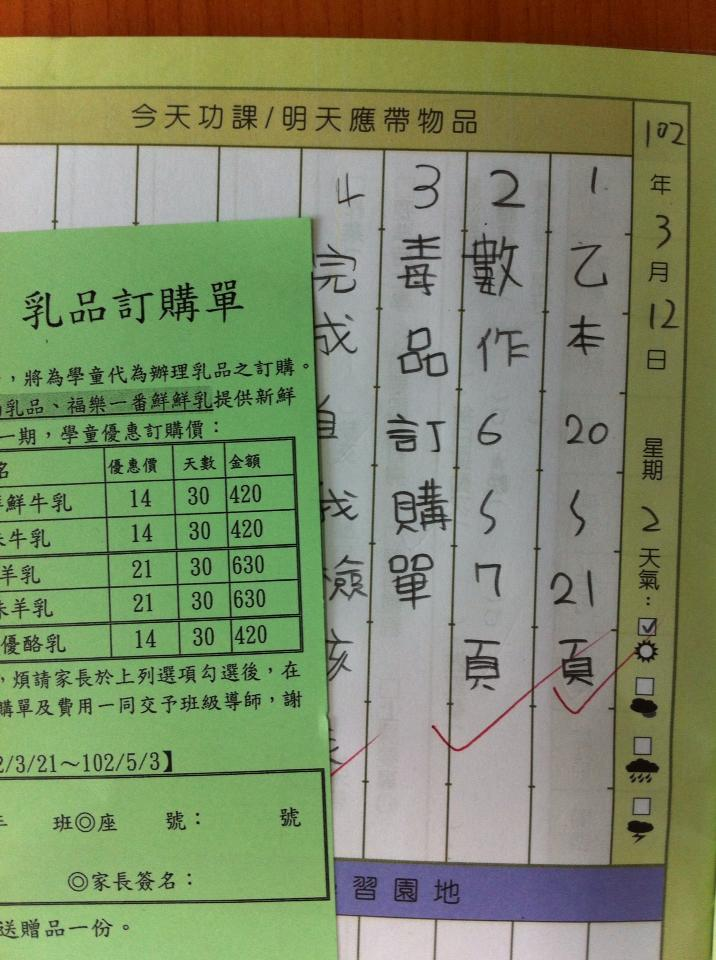 今天功課/明天應帶物品
102年3月12日 星期2 天氣：
1 乙本 20~21頁
2 數作 6~7頁
3 毒品訂購單
4 完成自我檢核
習園地
乳品訂購單
，將為學童代為辦理乳品之訂購。
乳品、福樂一番鮮鮮乳提供新鮮
一期，學童優惠訂購價：
名 優惠價 天數 金額
鮮牛乳 14 30 420
牛乳 14 30 420
羊乳 21 30 630
羊乳 21 30 630
優酪乳 14 30 420
，煩請家長於上列選項勾選後，在
購單及費用一同交予班級導師，謝
2/3/21～102/5/3】
年 班◎座 號： 號
◎家長簽名：
送贈品一份。